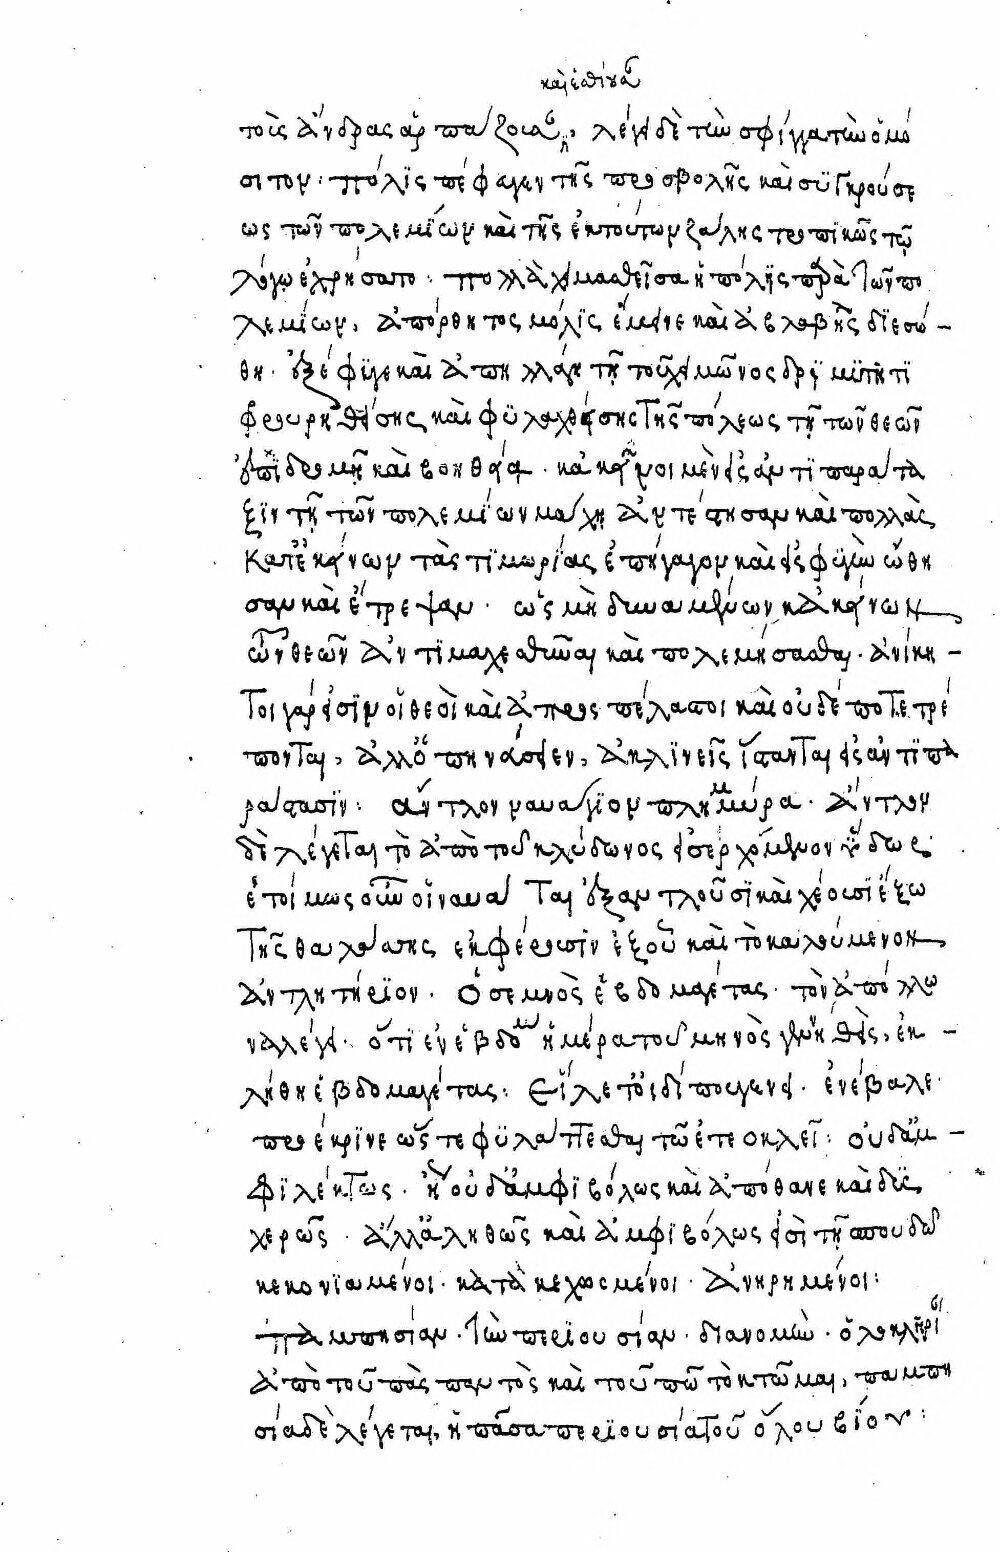 καὶ ἐσθίουσαν
τοὺς ἄνδρας ἁρπαζούσαν, λέγει δὲ τὼν σφίγγα τὼν ὠμό
σιτον· πόλις πέφαγεν τῆς προσβολῆς καὶ συγκρούσε
ως τῶν πολεμίων καὶ τῆς ἐκ τούτων ζάλης τροπικῶς τῷ
λόγω ἐχρήσατο· πολλὰ χιμασθεῖσα ἡ πόλις παρὰ τῶν πο
λεμίων, ἀπόρθητος μόλις ἔμεινε καὶ ἀβλαβὴς διεσώ-
θη· ἐξέφυγε καὶ ἀπηλλάγη τῇ τοῦ χειμῶνος
φρουρηθείσης καὶ φυλαχθείσης τῆς πόλεως τῇ τῶν θεῶν
ἐπιδρομῇ καὶ βοηθεία· κἀκεῖνοι μὲν εἰς ἀντιπαράτα
ξιν τῇ τῶν πολεμίων μάχη ἀντέστησαν καὶ πολλὰς
κατ' ἐκείνων τὰς τιμωρίας ἐπήγαγον καὶ εἰς φυγὼν ὤθη
σαν καὶ ἔτρεψαν· ὡς μὴ δυναμένων κἀκείνων
τῶν θεῶν ἀντιμάχεσθαι καὶ πολεμήσασθαι· ἀνίκη-
τοι γάρ εἰσιν οἱ θεοὶ καὶ ἀπρόσπέλαστοι καὶ οὐδέποτε τρέ
πονται, ἀλλ' ὁπηνάσθεν, ἀκλινεῖς ἵστανται εἰς ἀντιπα
ράστασιν: ἄντλον ναυάγιον πλημμύρα· ἄντλον
δὲ λέγεται τὸ ἀπὸ τοῦ κλύδωνος εἰσερχόμενον ὕδωρ·
ἑτοίμως οὖν οἱ ναῦται ἐξαντλοῦσι καὶ χέουσι ἔξω
τῆς θαλάσσης ἐκφέρουσιν ἐξ οὗ καὶ τὸ καλούμενον
ἀντλητήριον· ὁ σεμνὸς ἑβδομαγέτας· τὸν ἀπόλλω
να λέγει· ὅτι ἐν ἑβδόμω ἡμέρα τοῦ μηνὸς γεννηθεὶς, ἐκ-
λήθη ἑβδομαγέτας: εἵλετ' οἰδίπου γένει· ἐνέβαλε·
προέκρινε ὥστε φυλάττεσθαι τῶ ἐτεοκλεῖ: οὐδ' ἀμ-
φιλέκτως· ἢ οὐδ' ἀμφιβόλως καὶ ἀπόθανε καὶ δυς
χερῶς· ἀλλ' ἀληθῶς καὶ ἀμφιβόλως ἐπὶ τῇ σπουδῇ
κεκονιαμένοι· κατακεχωσμένοι· ἀνηρημένοι:
παμπησίαν· τὼν περιουσίαν· διανομὼν· ὁλοκληρί
ἀπὸ τοῦ πᾶς παντὸς καὶ τοῦ πῶ τὸ κτῶμαι, παμπη
σία δὲ λέγεται, ἡ πᾶσα περιουσία τοῦ ὅλου βίου: